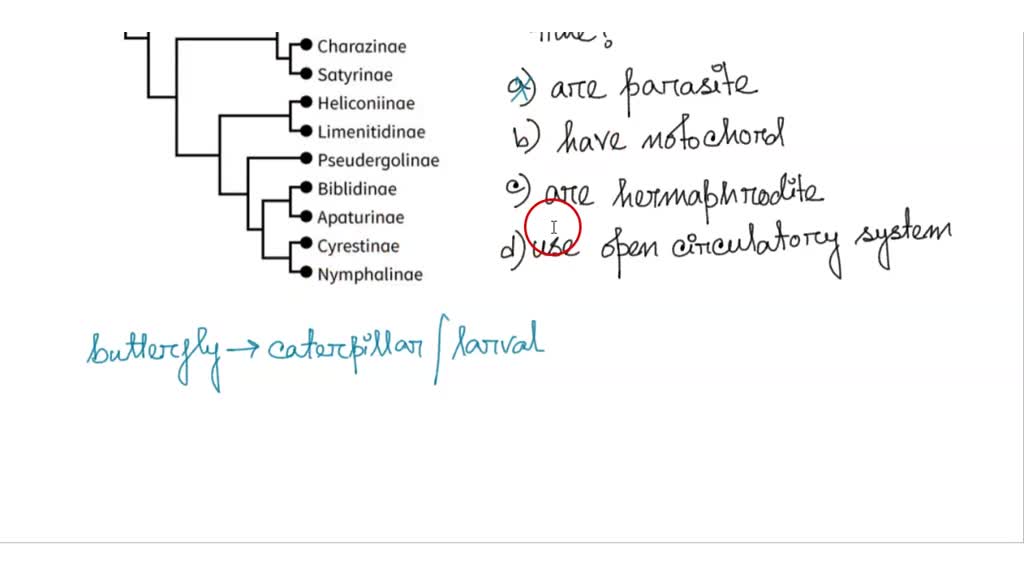 Charaxinae
Satyrinae
Heliconiinae
Limenitidinae
Pseudergolinae
Biblidinae
Apaturinae
Cyrestinae
Nymphalinae
a) are parasite
b) have notochord
c) are hermaphrodite
d) use open circulatory system
butterfly → caterpillar / larval